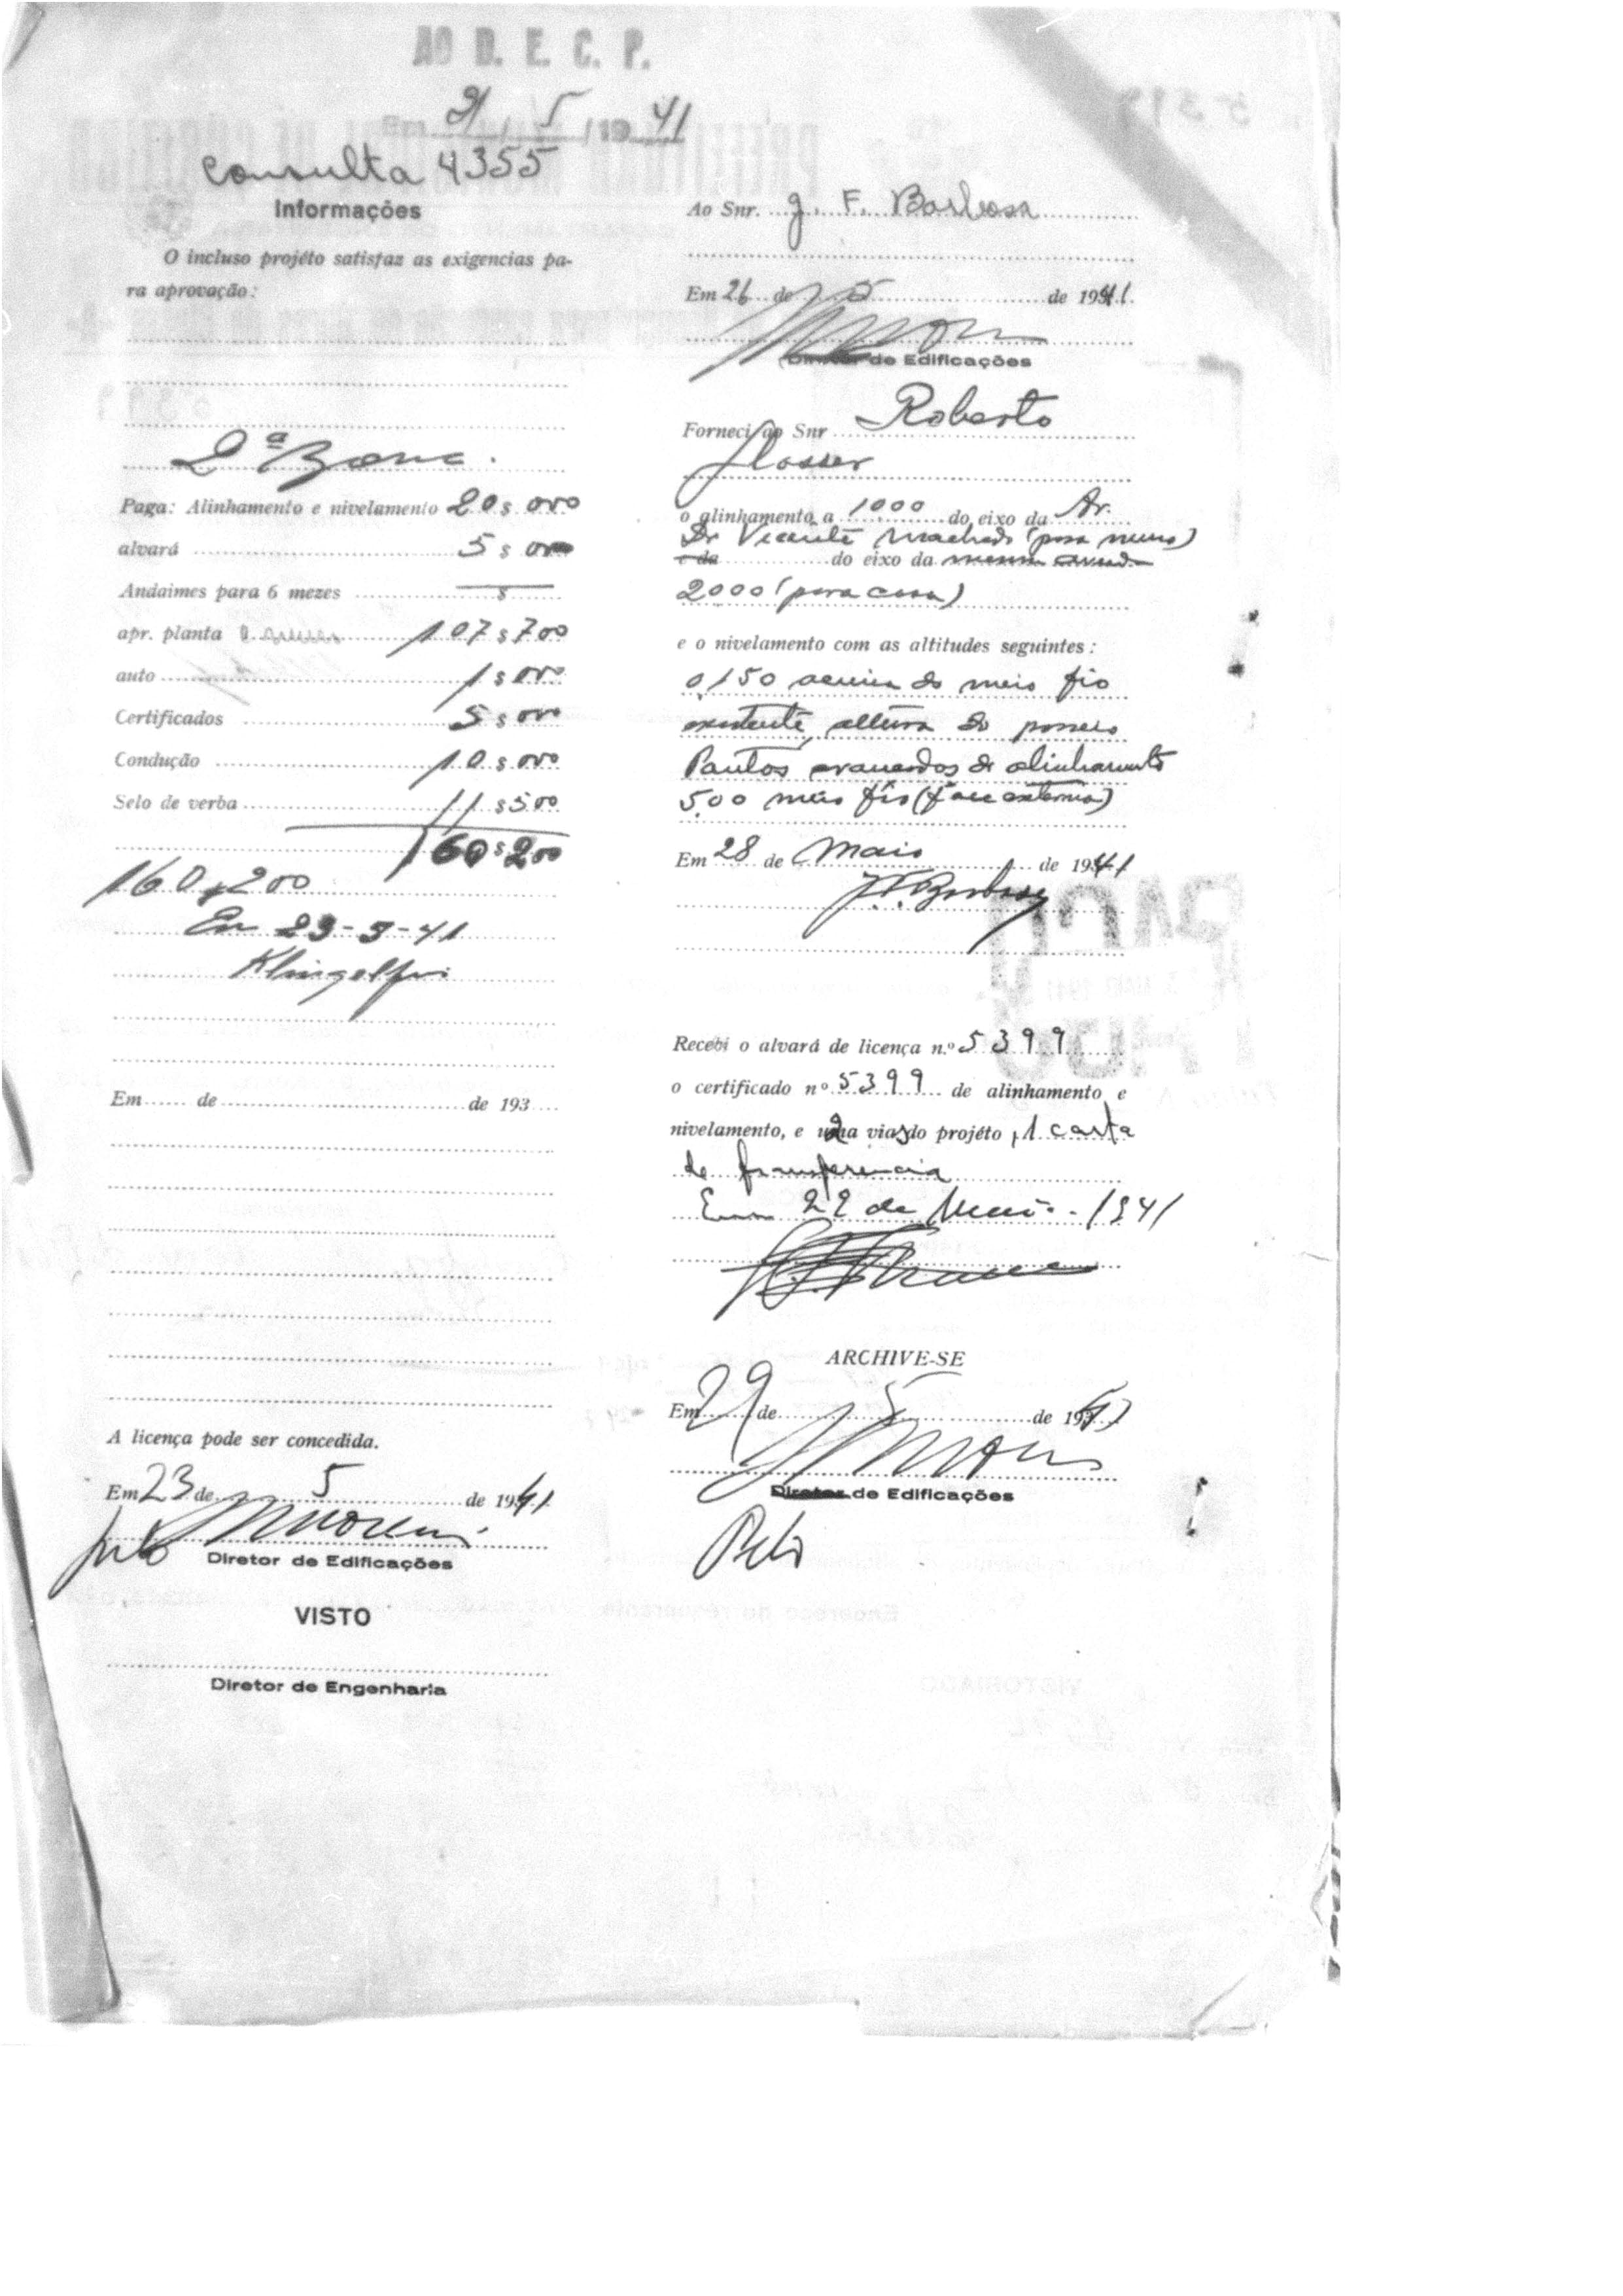 AO D. E. C. P.
Em 21/5/1941
Consulta 4355
Informações
O incluso projéto satisfaz as exigencias pa-
ra aprovação:
2ª Zona.
Paga: Alinhamento e nivelamento 20$000
alvará 5$000
Andaimes para 6 mezes — $
apr. planta 107$700
auto 1$000
Certificados 5$000
Condução 10$000
Selo de verba 11$500
160$200
160$200
Em 23-5-41
Em de de 193
A licença pode ser concedida.
Em 23 de 5 de 1941
Diretor de Edificações
VISTO
Diretor de Engenharia
Ao Snr. J. F. Barbosa
Em 26 de 5 de 1941.
Diretor de Edificações
Forneci ao Snr Roberto
o alinhamento a 1000 do eixo da Av.
Dr Vicente Machado (para muro)
e da do eixo da
2000 (para casa)
e o nivelamento com as altitudes seguintes:
0,150 acima do meio fio
existente, altura do passeio
Pontos avançados do alinhamento
5,00 meio fio (face externa)
Em 28 de Maio de 1941
J. F. Barbosa
Recebi o alvará de licença n.º 5399
o certificado nº 5399 de alinhamento e
nivelamento, e 2 vias do projéto, 1 carta
de transferencia
Em 22 de Maio - 1941
ARCHIVE-SE
Em 29 de 5 de 194
Diretor de Edificações